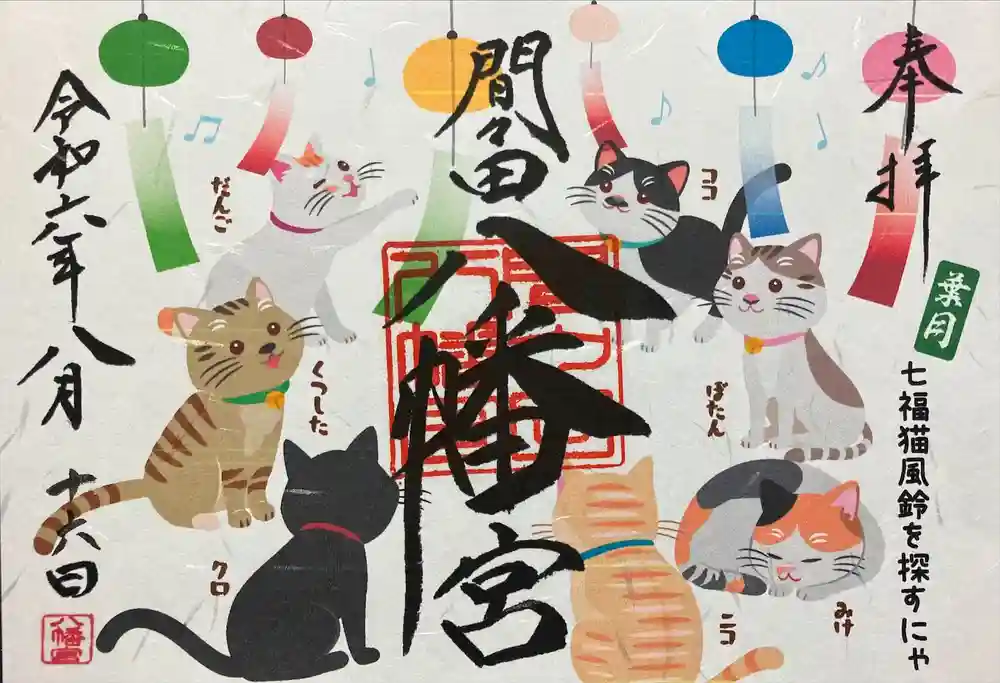 奉拝
葉月
七福猫風鈴を探すにゃ
間々田
八幡宮
ココ
ぼたん
みけ
ニコ
だんご
くつした
クロ
令和六年八月
十六日
八幡宮